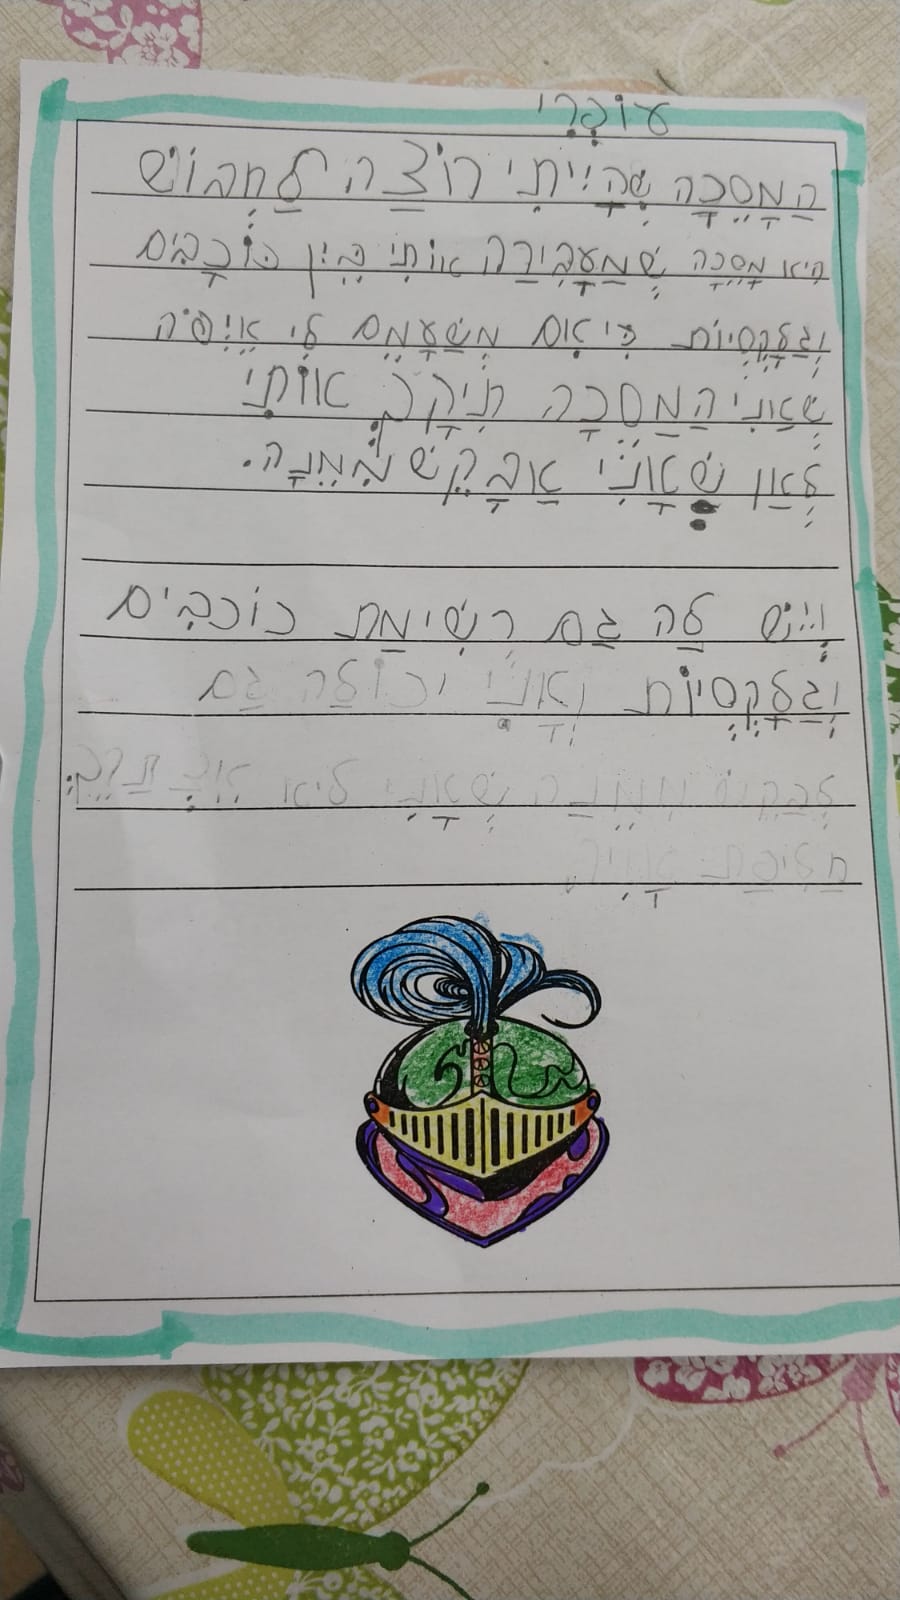 עוֹפְרִי
הַמַסֵכָה שֶהָיִיתִי רוֹצָה לַחְבוֹש
הִיא מַסֵכָה שֶמַעֲבִירָה אוֹתִי בֵּין כּוֹכָבִים
וְגַלַקְסִיוֹת כִּי אִם מְשַעֲמֵם לִי אֵיפֹה
שֶאֲנִי הַמַסֵכָה תִיקַח אוֹתִי
לְאַן שֶאֲנִי אֲבַקֵש מִמֵנָה.
וְיֵש לָה גַם רְשִימַת כוֹכָבִים
וְגַלַקְסִיוֹת וַאֲנִי יכוֹלָה גַם
לְבַקֵש מִמֵנָה שֶאֲנִי
חַלִיפַת